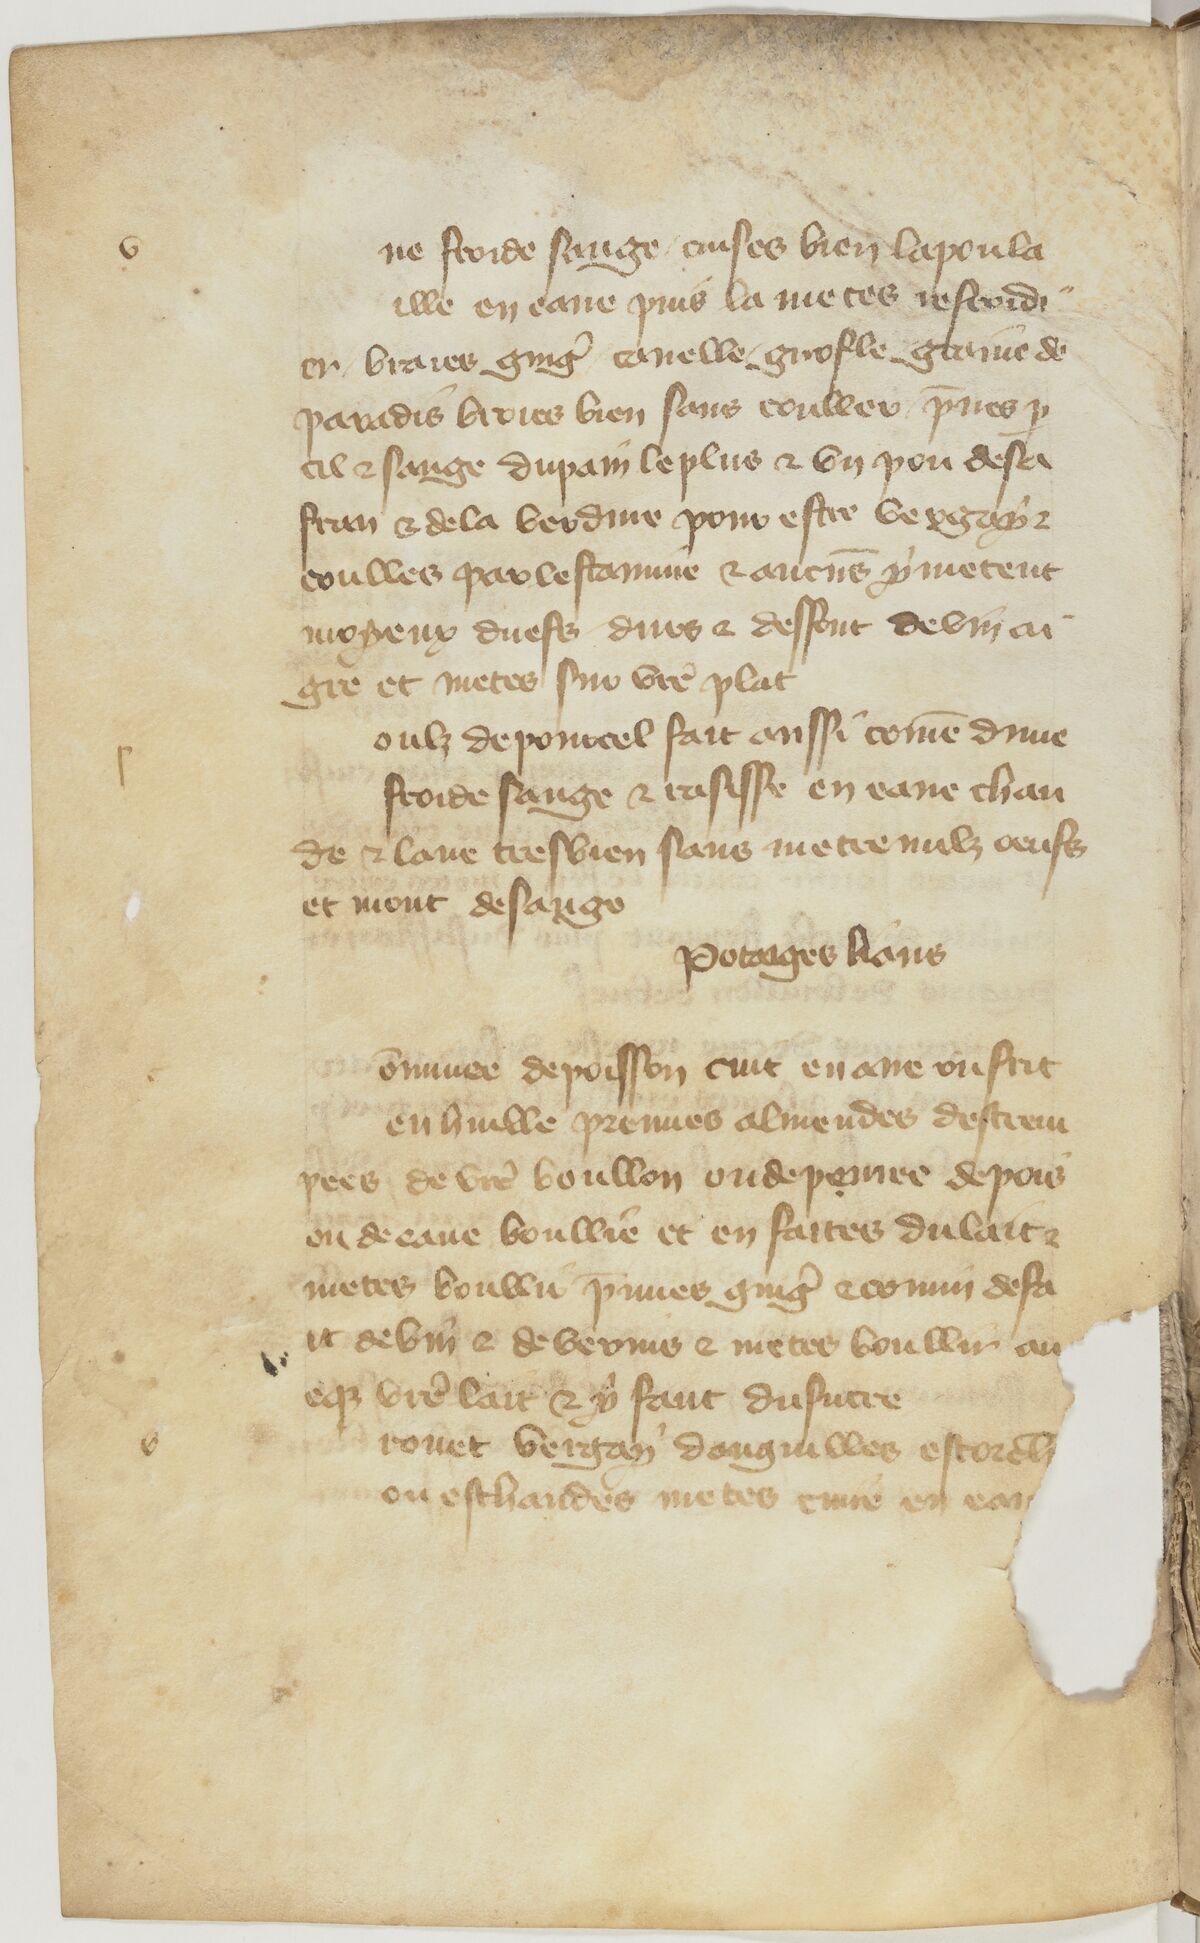 v
ne froide sauge cuises bien lapoula
ille en eaue puis la metes refroidi
er / braies ging̉ canelle girofle graine de
paradis broies bien sans couller p̄nes p̱
cil ⁊ sauge dupain leplus ⁊ vn pou desa
fran ⁊ dela verdure pour estre vergay ⁊
coulles par lestamine ⁊ aucūs y metent
moyeux duefs durs ⁊ deffont devin ai
gre et metes sur vrē plat
oulz depourcel fait aussi comē dune
froide sauge ⁊ rasisse en eaue chau
de ⁊ laue tresbien sans metre nulz oeufs
et mout desauge
Potaiges lians
ōminee depoisson cuit en aue ou frit
en huille prennes almendes destrem
pees de vrē boullon oudepouree depois
ou de eaue boullie et en faites dulait ⁊
metes boullir p̄nnes ging̉ ⁊ comin defa
it devin ⁊ de verius ⁊ metes boullir au
eq̄ vrē lait ⁊ y faut dusucre
v
rouet vergay danguilles escorch
ou eschaudes metes cuire en eau